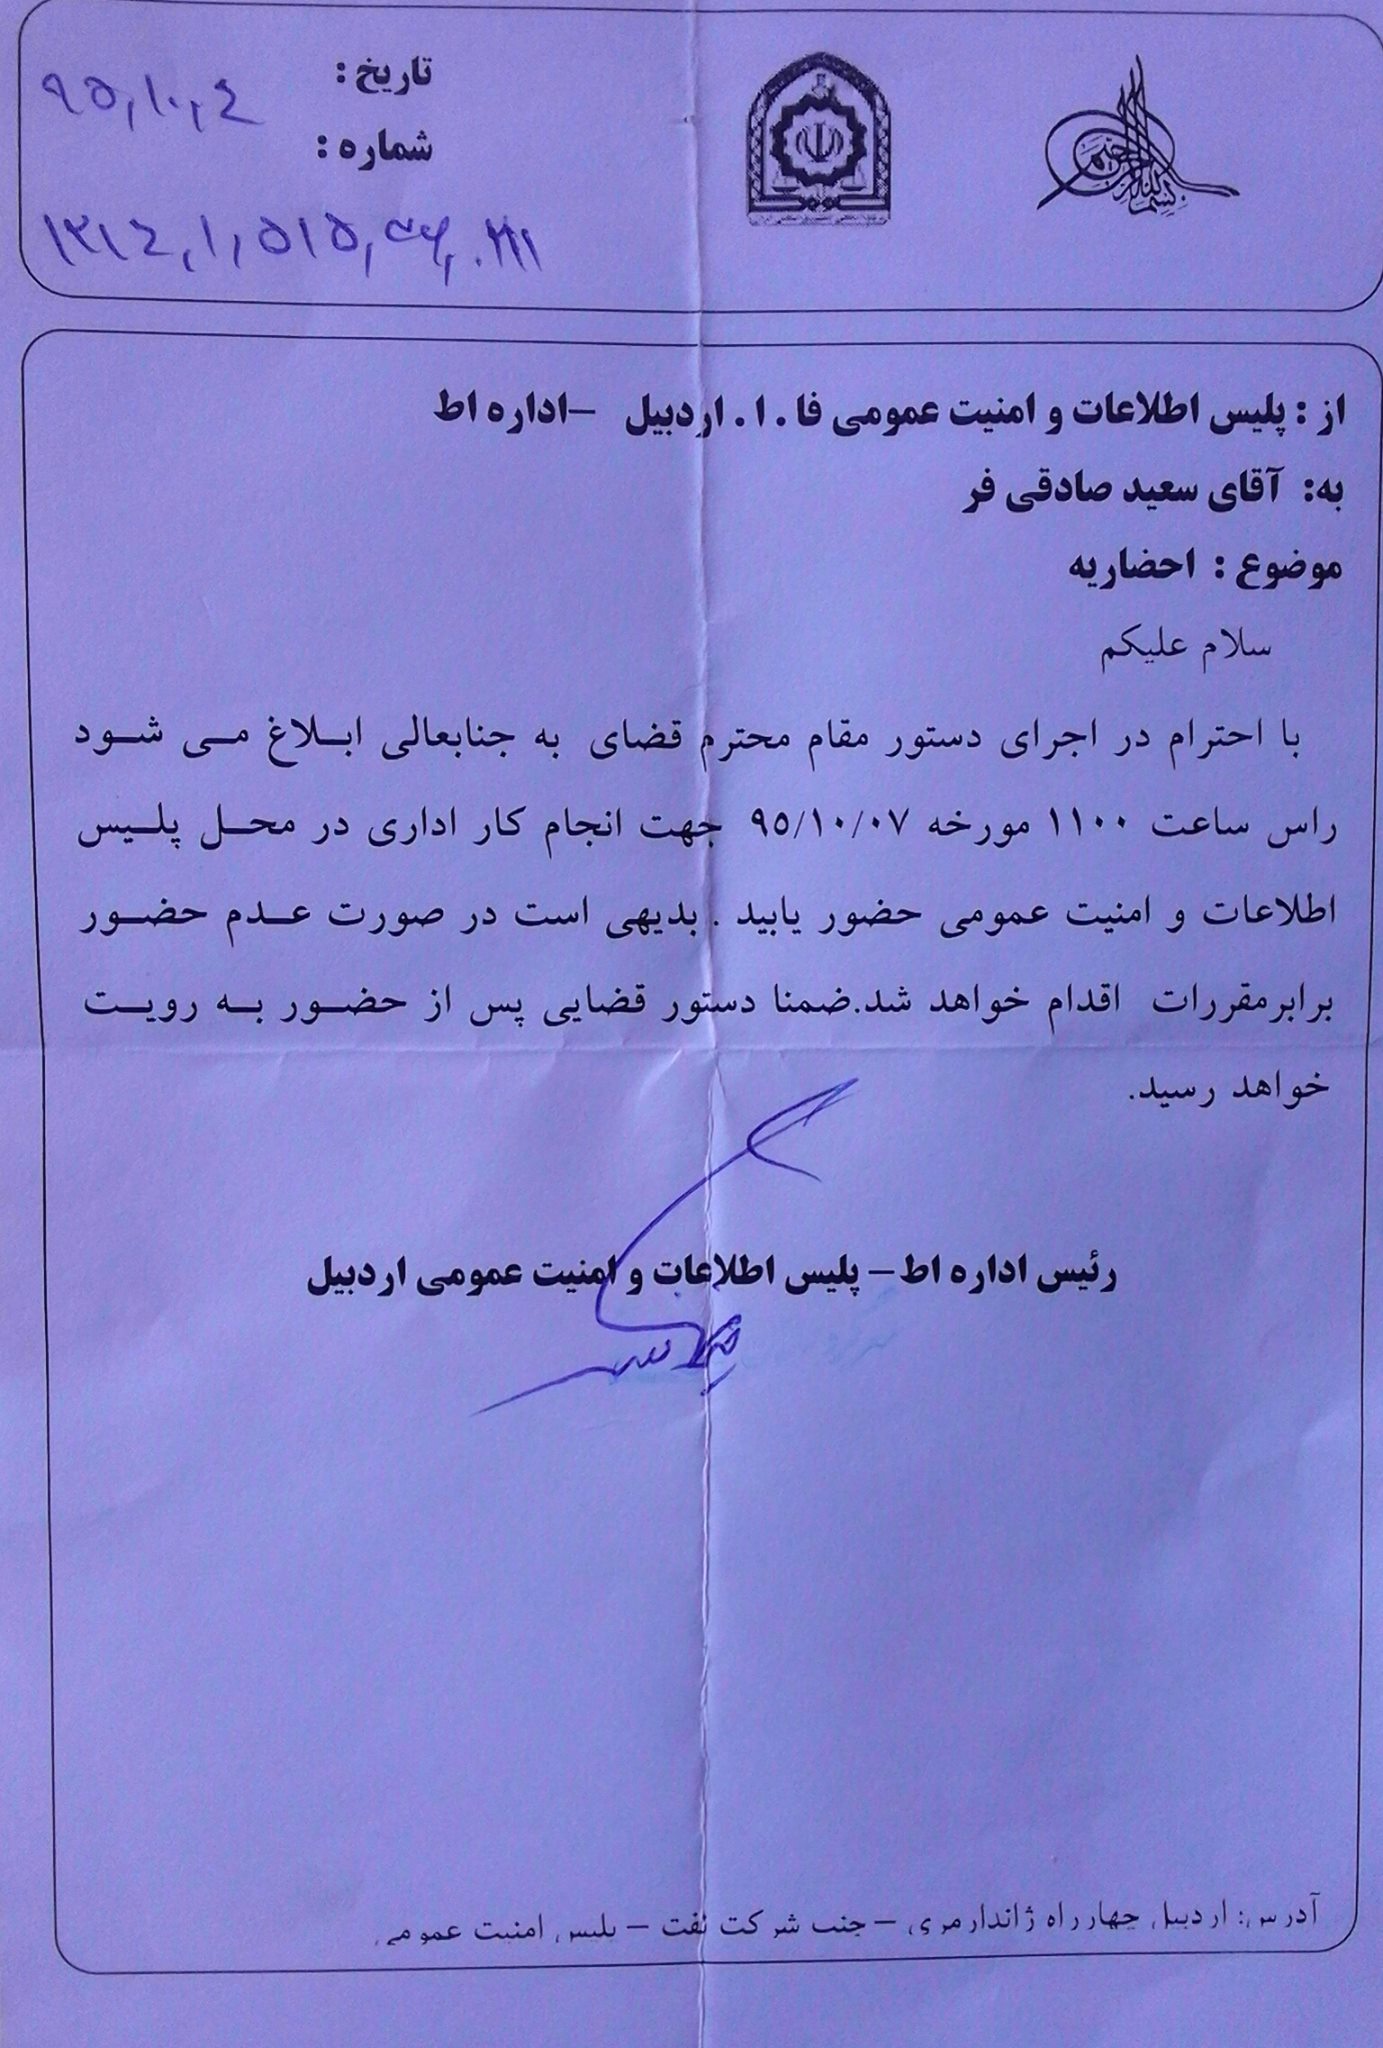 بسم الله الرحمن الرحیم
تاریخ :
۹۵,۱۰,۴
شماره :
از : پلیس اطلاعات و امنیت عمومی فا . ا . اردبیل –اداره اط
به: آقای سعید صادقی فر
موضوع : احضاریه
سلام علیکم
با احترام در اجرای دستور مقام محترم قضای به جنابعالی ابلاغ می شود
راس ساعت ۱۱۰۰ مورخه ۹۵/۱۰/۰۷ جهت انجام کار اداری در محل پلیس
اطلاعات و امنیت عمومی حضور یابید . بدیهی است در صورت عدم حضور
برابرمقررات اقدام خواهد شد.ضمنا دستور قضایی پس از حضور به رویت
خواهد رسید.
رئیس اداره اط – پلیس اطلاعات و امنیت عمومی اردبیل
آدرس: اردبیل چهارراه ژاندارمری – جنب شرکت نفت – پلیس امنیت عمومی